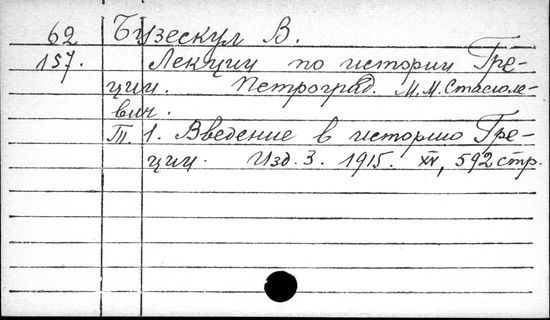 62 Бузескул В.
157. Лекции по истории Гре-
ции. Петроград. М.М. Стасюле-
вич.
Т. 1. Введение в историю Гре-
ции. Изд. 3. 1915. XV, 592 стр.